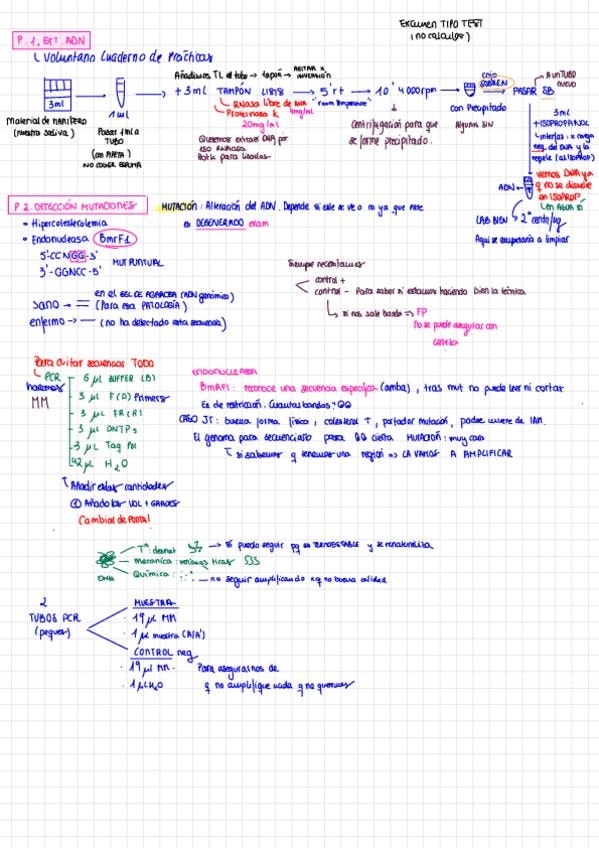 Examen TIPO TEST
(no calculadora)
P. 1. EXT. ADN
Voluntario Cuaderno de Prácticas
3ml
Material de PARTIDA
(nuestra saliva)
1 ml
Pasar 1 ml a
TUBO
(con PIPETA)
NO COGER ESPUMA
Añadimos TL al tubo → tapón → AGITAR X INVERSIÓN
+ 3 ml TAMPÓN LISIS → 5' rt → 10' 4000 rpm →
RNasa libre de DNA 4mg/ml
Proteinasa K
20mg/ml
"room temperature"
Queremos extraer DNA por
eso RNAasa
Centrifugación para que
se forme precipitado.
cojo
SOBREN
con Precipitado
PASAR SB
A un TUBO
nuevo
3 ml
+ ISOPROPANOL
neg. del DNA y lo
repele (al ISOPROP)
vemos DNA ya
q no se disuelve
en ISOPROP
ADN
LAB BIEN → 2ª centrifug
Aquí se recuperaría a limpiar
P 2. DETECCIÓN MUTACIONES
MUTACIÓN: Alteración del ADN. Depende si este se ve o no ya que este
es DEGENERADO exam
• Hipercolesterolemia
• Endonucleasa BmrF1
5'-CCNGG-3'
3'-GGNCC-5'
MUT PUNTUAL
sano → = en el GEL DE AGAROSA (ADN genómico)
(Para esa PATOLOGÍA)
enfermo → — (no ha detectado esta secuencia)
Siempre necesitamos
control +
control - Para saber si estamos haciendo bien la técnica
si nos sale banda => FP
No se puede asegurar con
certeza
Para evitar secuenciar TODO
PCR
haremos
MM
- 6 µL BUFFER (B)
- 3 µL F (D) Primers
- 3 µL FR (R)
- 3 µL DNTPs
- 3 µL Taq Pol
- 42 µL H2O
Añadir estas cantidades
① Añado los VOL + GRANDES
Cambiar de PUNTA!
ENDONUCLEASA
BmrFI: reconoce una secuencia específica (arriba), tras mut no puede leer ni cortar
Es de restricción. Cuántas bandas?
CASO JT: buena forma física, colesterol ↑, portador mutación, padre muere de IAM.
El genoma para secuenciarlo para cierta MUTACIÓN: muy caro
si sabemos q tenemos una región => LA VAMOS A AMPLIFICAR
DNA
Tª: desnat → sí puedo seguir pq es TERMOESTABLE y se renaturaliza
mecánica: varias tiras
Química: — no seguir amplificando xq no buena calidad
2
TUBOS PCR
(peques)
MUESTRA
· 19 µL MM
· 1 µL muestra (A/A')
CONTROL neg
· 19 µL MM.
· 1 µL H2O
Para asegurarnos de
q no amplifique nada q no queremos